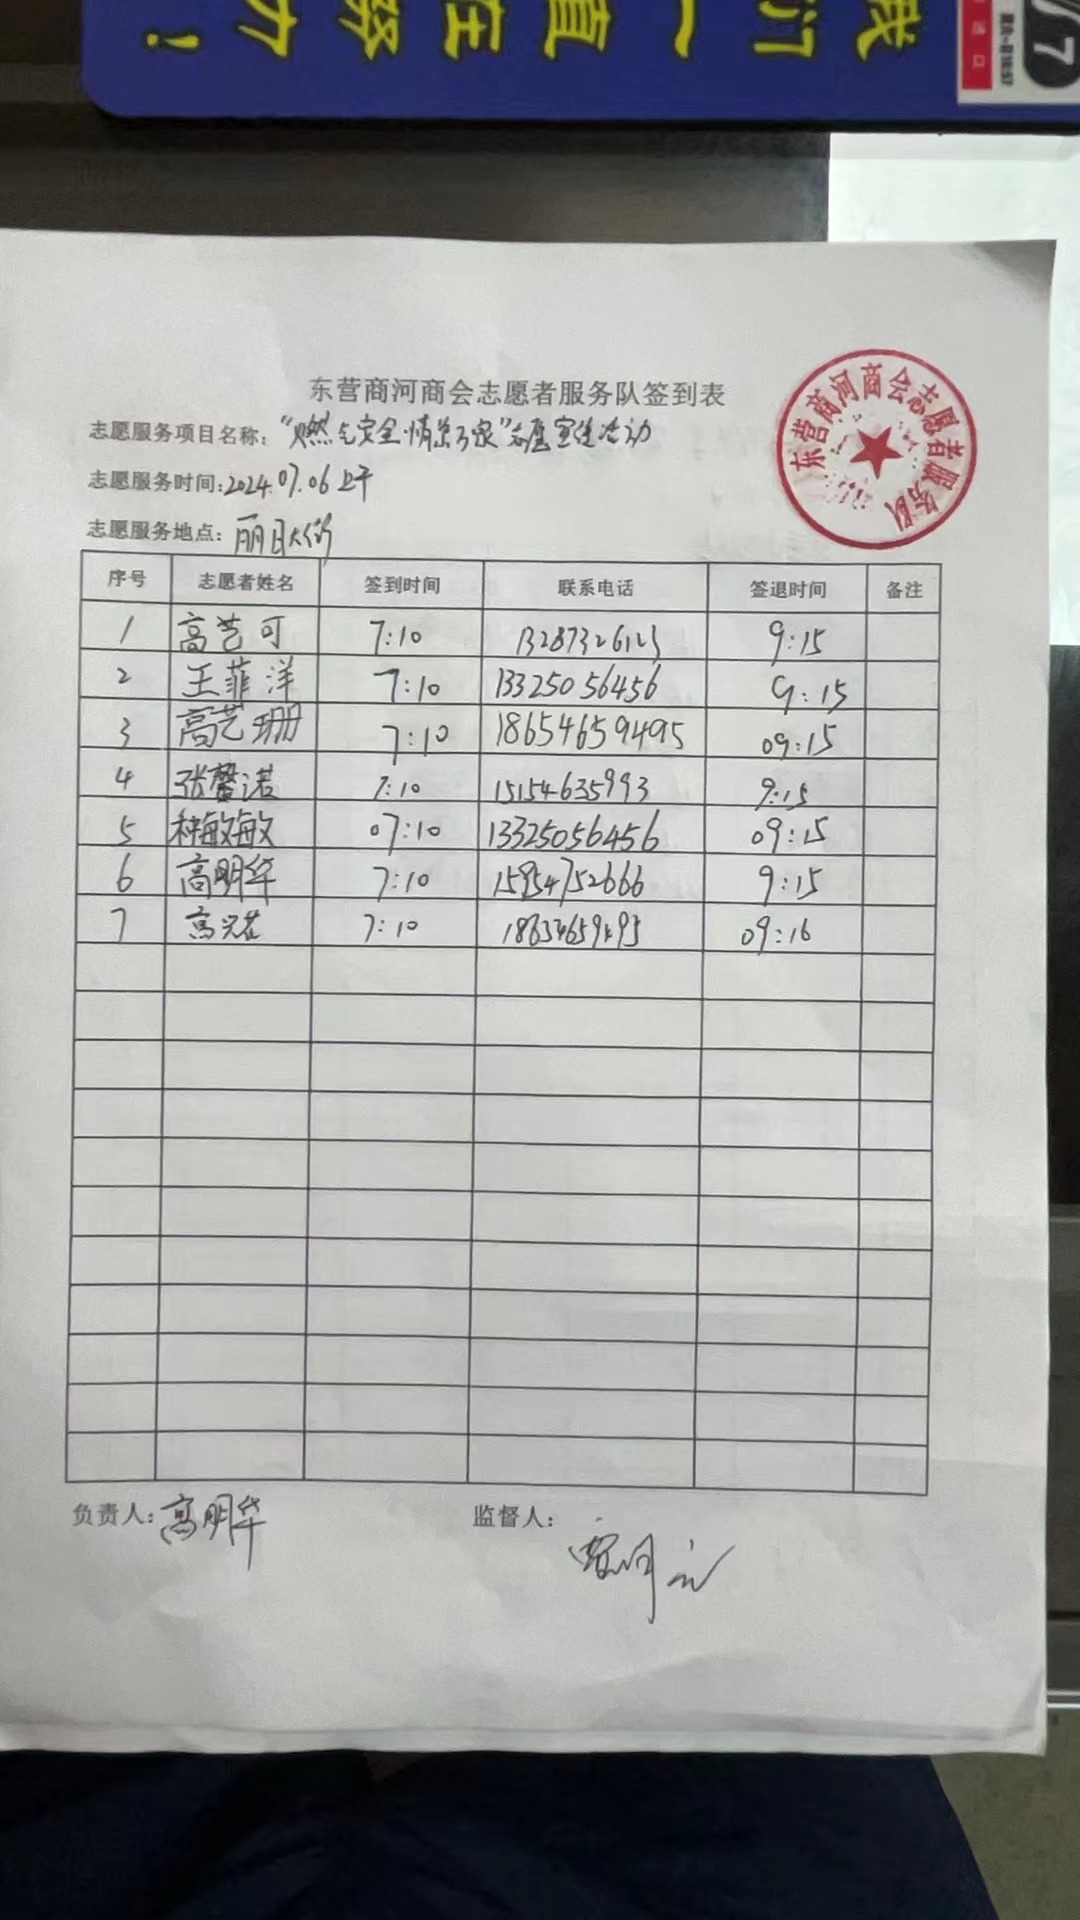 我们一直在努力!
7
进口
东营商河商会志愿者服务队签到表
东营商河商会志愿者服务队
志愿服务项目名称:“燃气安全·情系万家”志愿宣传活动
志愿服务时间:2024.07.06上午
志愿服务地点:丽日大街
序号 志愿者姓名 签到时间 联系电话 签退时间 备注
1 高艺可 7:10 13287326123 9:15
2 王菲洋 7:10 13325056456 9:15
3 高艺珊 7:10 18654659495 09:15
4 张馨诺 7:10 15154635993 9:15
5 种敏敏 07:10 13325056456 09:15
6 高明华 7:10 15954752666 9:15
7 高 7:10 09:16
负责人:高明华
监督人: